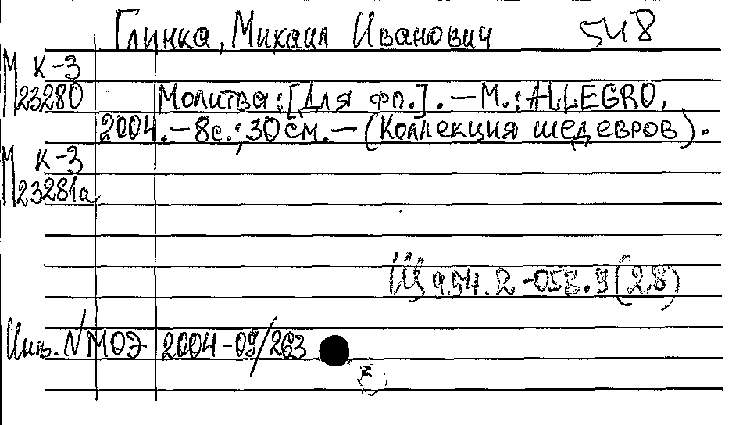 Глинка, Михаил Иванович 548
М К-3
23280
Молитва: [Для фп.]. — М.: ALLEGRO,
2004. — 8с.; 30 см. — (Коллекция шедевров).
М К-3
23281а
Щ 954.2-
Инв. N МОЭ 2004-09/263